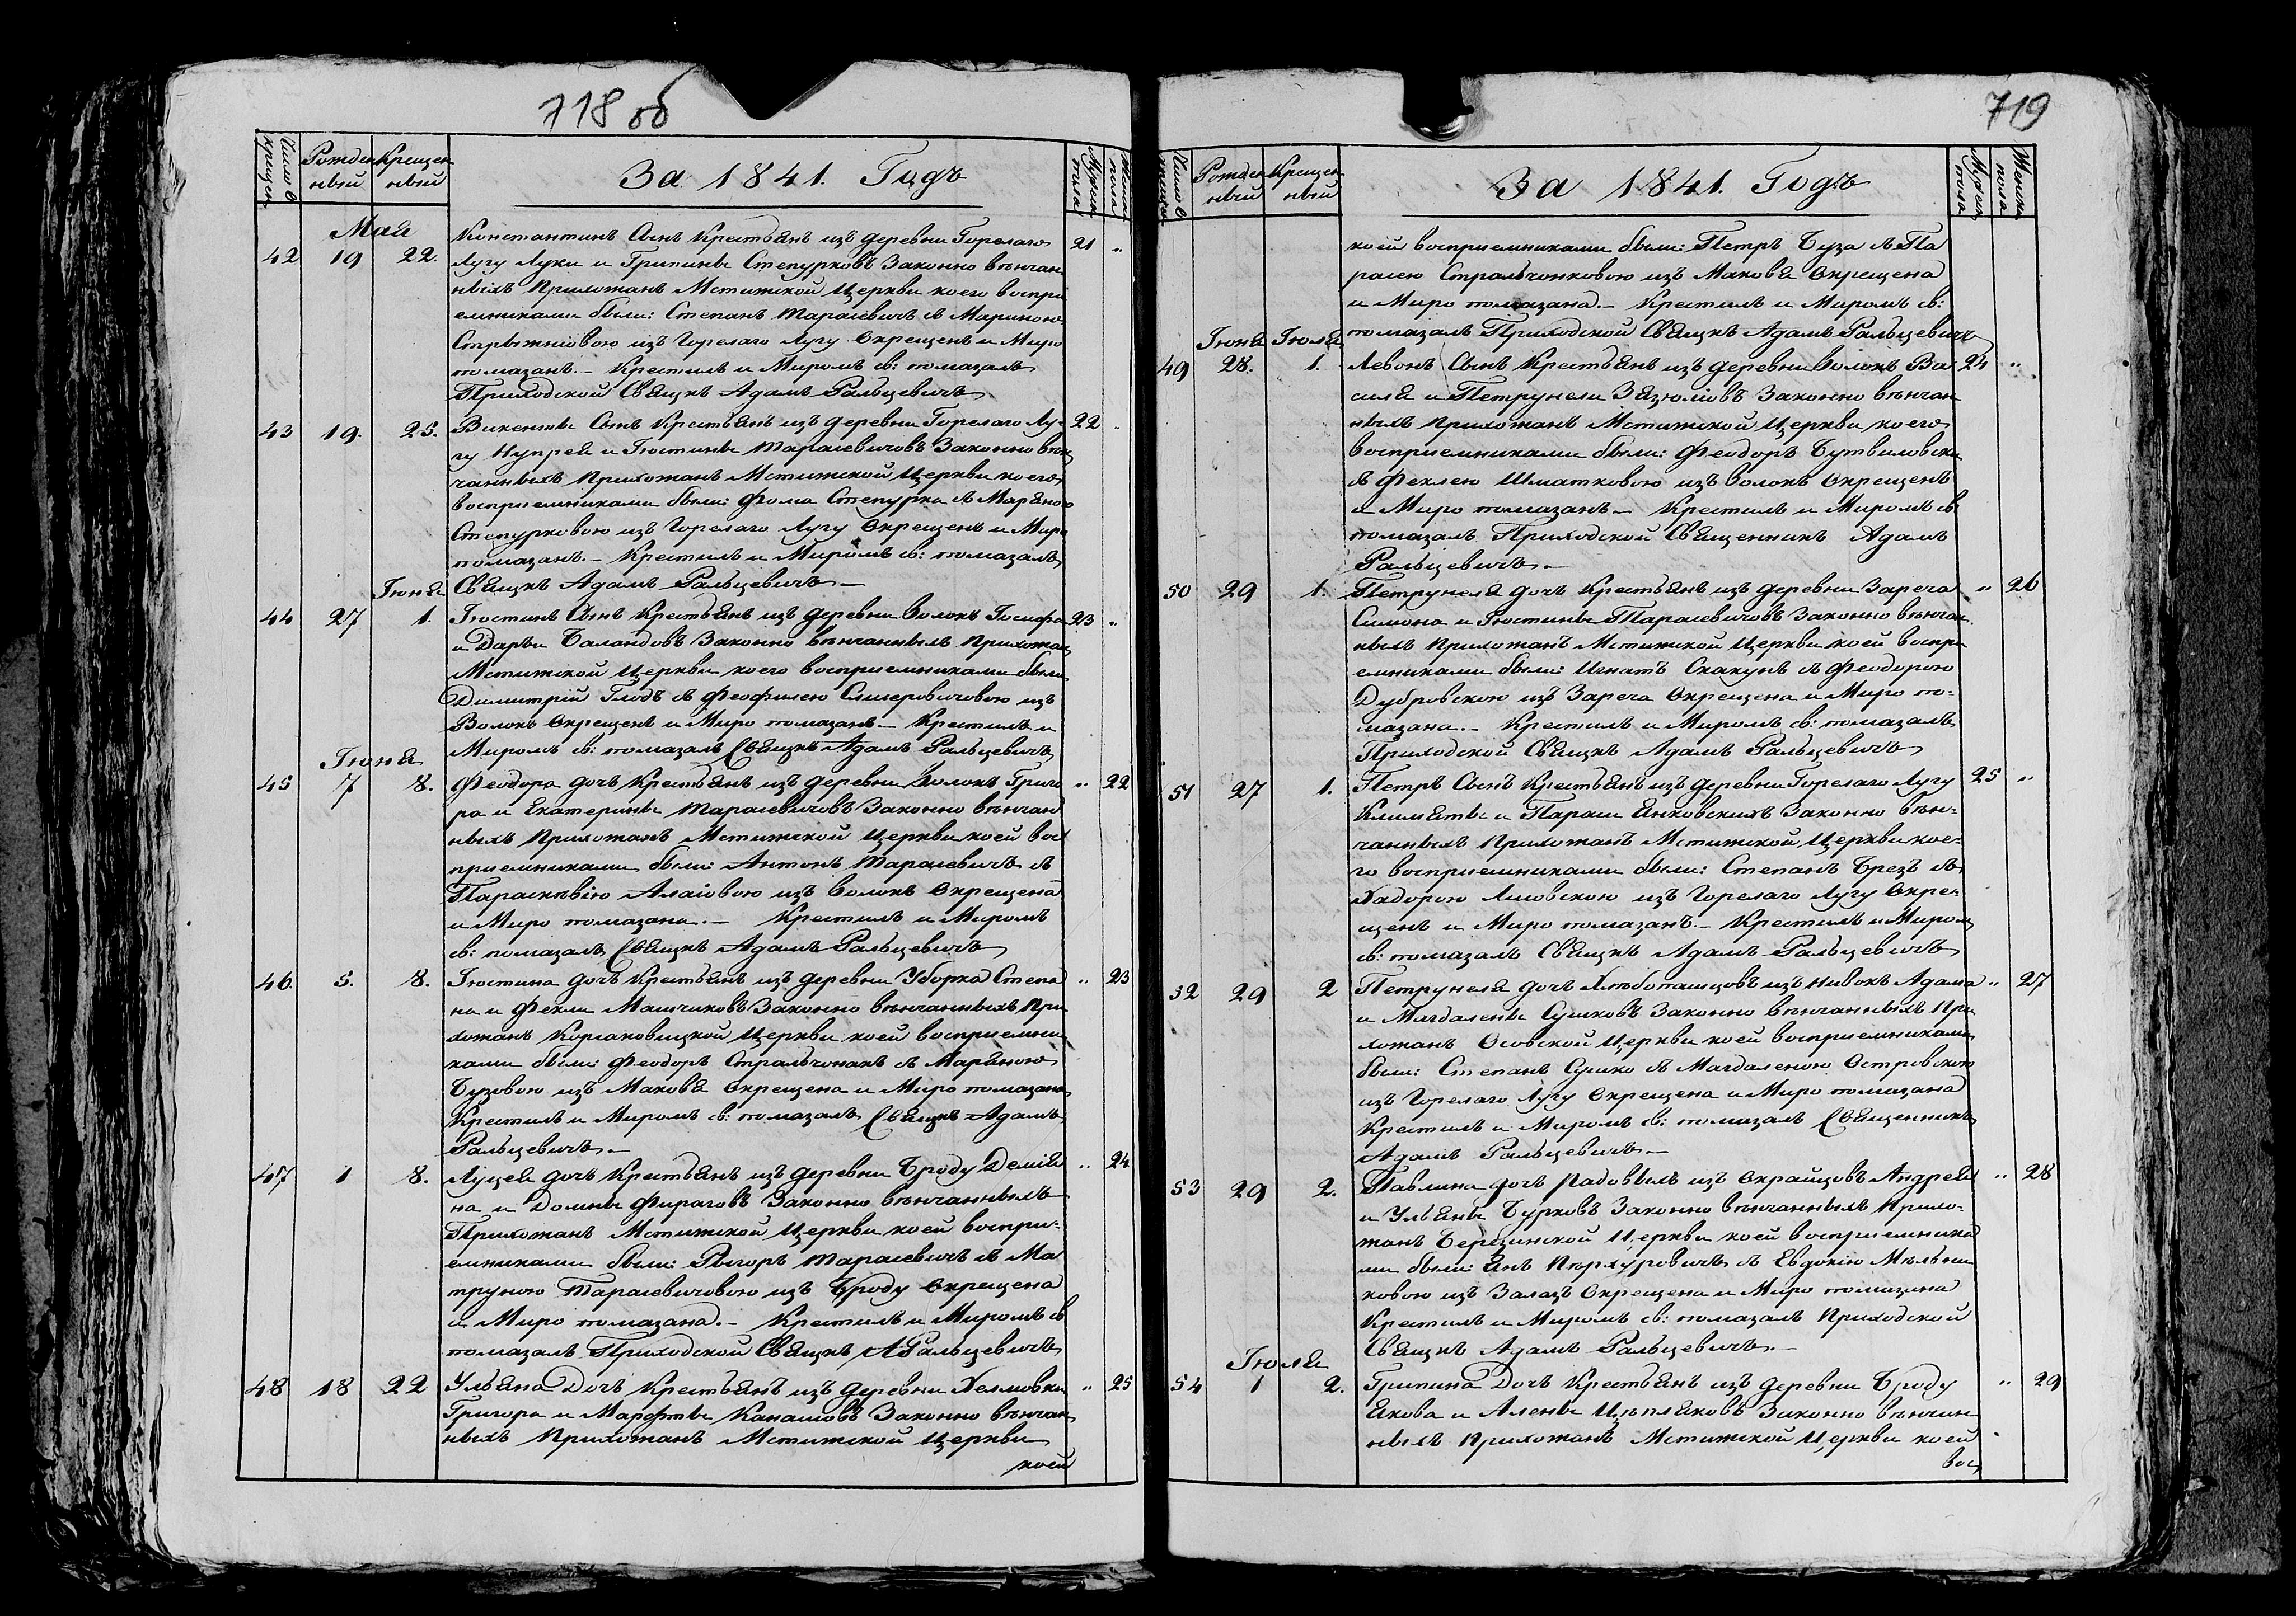 718 об
Число крещен
Рожденный
Крещенный
За 1841. Годъ
Мужеск пола
Женск пола
Мая
42 19 22. Константинъ Сынъ Крестьянъ изъ деревни Горелаго 21 „
Лугу Луки и Грипины Степурковъ Законно вѣнчан
ныхъ Прихожанъ Мстижской Церкви коего воспри
емниками были: Степанъ Тарасевичъ съ Мариною
изъ Горелаго Лугу Окрещенъ и Миро
помазанъ. – Крестилъ и Миромъ св: помазалъ
Приходской Свящкъ Адамъ Ральцевичъ
43 19. 25. Викенты Сынъ Крестьянъ изъ деревни Горелаго Лу- 22 „
гу Нупрея и Іюстины Тарасевичовъ Законно вѣн
чанныхъ Прихожанъ Мстижской Церкви коего
восприемниками были Фома Степурка съ Маряною
Степурковою изъ Горелаго Лугу Окрещенъ и Миро
помазанъ. – Крестилъ и Миромъ св: помазалъ
Іюня Свящкъ Адамъ Ральцевичъ –
44 27 1. Іюстинъ Сынъ Крестьянъ изъ деревни Волокъ Іосифа 23 „
и Дарьи Баландовъ Законно вѣнчанныхъ Прихожан
Мстижской Церкви коего восприемниками были
Димитрій Глодъ съ Феофилею изъ
Волокъ Окрещенъ и Миро помазанъ – Крестилъ и
Миромъ св: помазалъ Свящкъ Адамъ Ральцевичъ
Іюня
45 7 8. Феодора дочь Крестьянъ изъ деревни Волокъ Григо „ 22
ра и Екатерины Тарасевичовъ Законно вѣнчан
ныхъ Прихожанъ Мстижской Церкви коей вос
приемниками были: Антонъ Тарасевичъ съ
Параскевіею Алаіовою изъ Волокъ Окрещена
и Миро помазана. – Крестилъ и Миромъ
св: помазалъ Свящкъ Адамъ Ральцевичъ
46. 5. 8. Іюстина дочь Крестьянъ изъ деревни Уборка Степа „ 23
на и Феклы Машчиковъ Законно вѣнчанныхъ При
хожанъ Корсаковицкой Церкви коей восприемни
ками были: Феодоръ Стральчонакъ съ Маряною
Бузовою изъ Маковя Окрещена и Миро помазана
Крестилъ и Миромъ св: помазалъ Свящкъ Адамъ
Ральцевичъ. –
47 1 8. Луцея дочь Крестьянъ изъ деревни Броду Демія „ 24
на и Домны Фираговъ Законно вѣнчанныхъ
Прихожанъ Мстижской Церкви коей воспри-
емниками были: Рыгоръ Тарасевичъ съ Ма
труною Тарасевичовою изъ Броду Окрещена
и Миро помазана. – Крестилъ и Миромъ св
помазалъ Приходской Свящкъ А Ральцевичъ
48 18 22 Ульяна Дочь Крестьянъ изъ деревни Хелмовки „ 25
Григора и Марфты Канашовъ Законно вѣнчан
ныхъ Прихожанъ Мстижской Церкви
коей
719
Число крещен
Рожденный
Крещенный
За 1841. Годъ
Мужеск пола
Женска пола
коей восприемниками были: Петръ Буза съ Па
расею Стральчонковою изъ Маковя Окрещена
и Миро помазана. – Крестилъ и Миромъ св:
Іюня Іюля помазалъ Приходской Свящкъ Адамъ Ральцевичъ
49 28. 1. Левонъ Сынъ Крестьянъ изъ деревни Волокъ Ва 24 „
силя и Петрунели Зязюліовъ Законно вѣнчан
ныхъ Прихожанъ Мстижской Церкви коего
восприемниками были: Феодоръ Бутвиловски
съ Феклею Шматковою изъ Волокъ Окрещенъ
и Миро помазанъ – Крестилъ и Миромъ св
помазалъ Приходской Священникъ Адамъ
Ральцевичъ. –
50 29 1. Петрунеля дочь Крестьянъ изъ деревни Зареча „ 26
Симона и Іюстины Тарасевичовъ Законно вѣнчан
ныхъ Прихожанъ Мстижской Церкви коей воспри
емниками были: Игнатъ Скакунъ съ Феодорою
Дубровскою изъ Зареча Окрещена и Миро по-
мазана. – Крестилъ и Миромъ св: помазалъ
Приходской Свящкъ Адамъ Ральцевичъ
51 27 1. Петръ Сынъ Крестьянъ изъ деревни Горелаго Лугу 25 „
Климяты и Параси Янковскихъ Законно вѣн-
чанныхъ Прихожанъ Мстижской Церкви кое-
го восприемниками были: Степанъ Брезъ съ
Хадорою изъ Горелаго Лугу Окре-
щенъ и Миро помазанъ. – Крестилъ и Миромъ
св: помазалъ Свящкъ Адамъ Ральцевичъ
52 29 2 Петрунеля дочь Хлѣбопашцовъ изъ Нивокъ Адама „ 27
и Магдалены Сушковъ Законно вѣнчанныхъ При
хожанъ Осовской Церкви коей восприемниками
были: Степанъ Сушко съ Магдаленою Островскою
изъ Горелаго Лугу Окрещена и Миро помазана
Крестилъ и Миромъ св: помазалъ Священникъ
Адамъ Ральцевичъ –
53 29 2. Павлина дочь изъ Окрайцовъ Андрея „ 28
и Ульяны Бурковъ Законно вѣнчанныхъ Прихо-
жанъ Березинской Церкви коей восприемника
ми были: Янъ съ Евдокіею Мѣльни
ковою изъ Залазъ Окрещена и Миро помазана
Крестилъ и Миромъ св: помазалъ Приходской
Свящкъ Адамъ Ральцевичъ. –
Іюля
54 1 2. Грипина Дочь Крестьянъ изъ деревни Броду „ 29
Якова и Алены Цѣпляковъ Законно вѣнчан
ныхъ Прихожанъ Мстижской Церкви коей
вос